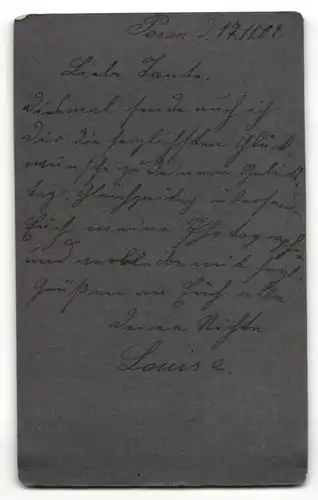 Posen, d. 17.11.01.
Liebe Tante.
Diesmal sende auch ich
Dir die herzlichsten Glück-
wünsche zu deinem Geburts-
tag. Gleichzeitig übersende
Euch meine Photographie
und verbleibe mit herzl.
Grüßen an Euch alle
Deine Nichte
Louise.